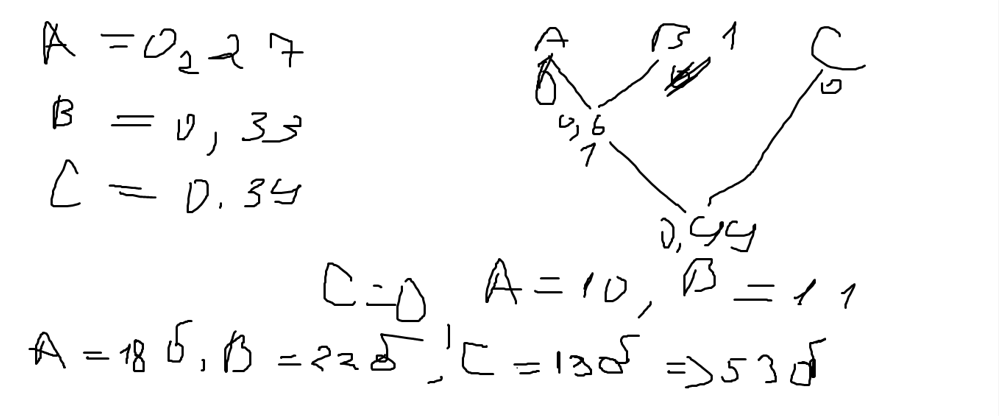 A = 0,27
B = 0,33
C = 0.34
A B 1 C
0 0
0,6
1
0,44
C=0 A=10, B=11
A=18б, B=22б, C=13б => 53б